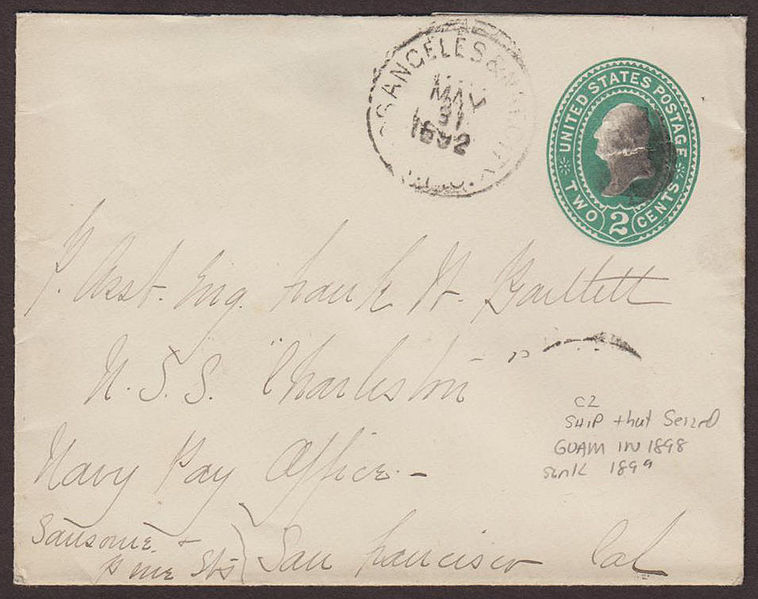 LOS ANGELES &
MAY
31
1892
R.P.O.
UNITED STATES POSTAGE
TWO 2 CENTS
P. Asst. Eng. Frank H. Bartlett
U.S.S. "Charleston"
Navy Pay Office -
Sansome &
Pine Sts } San Francisco Cal
C2
SHIP that Seized
GUAM IN 1898
sunk 1899